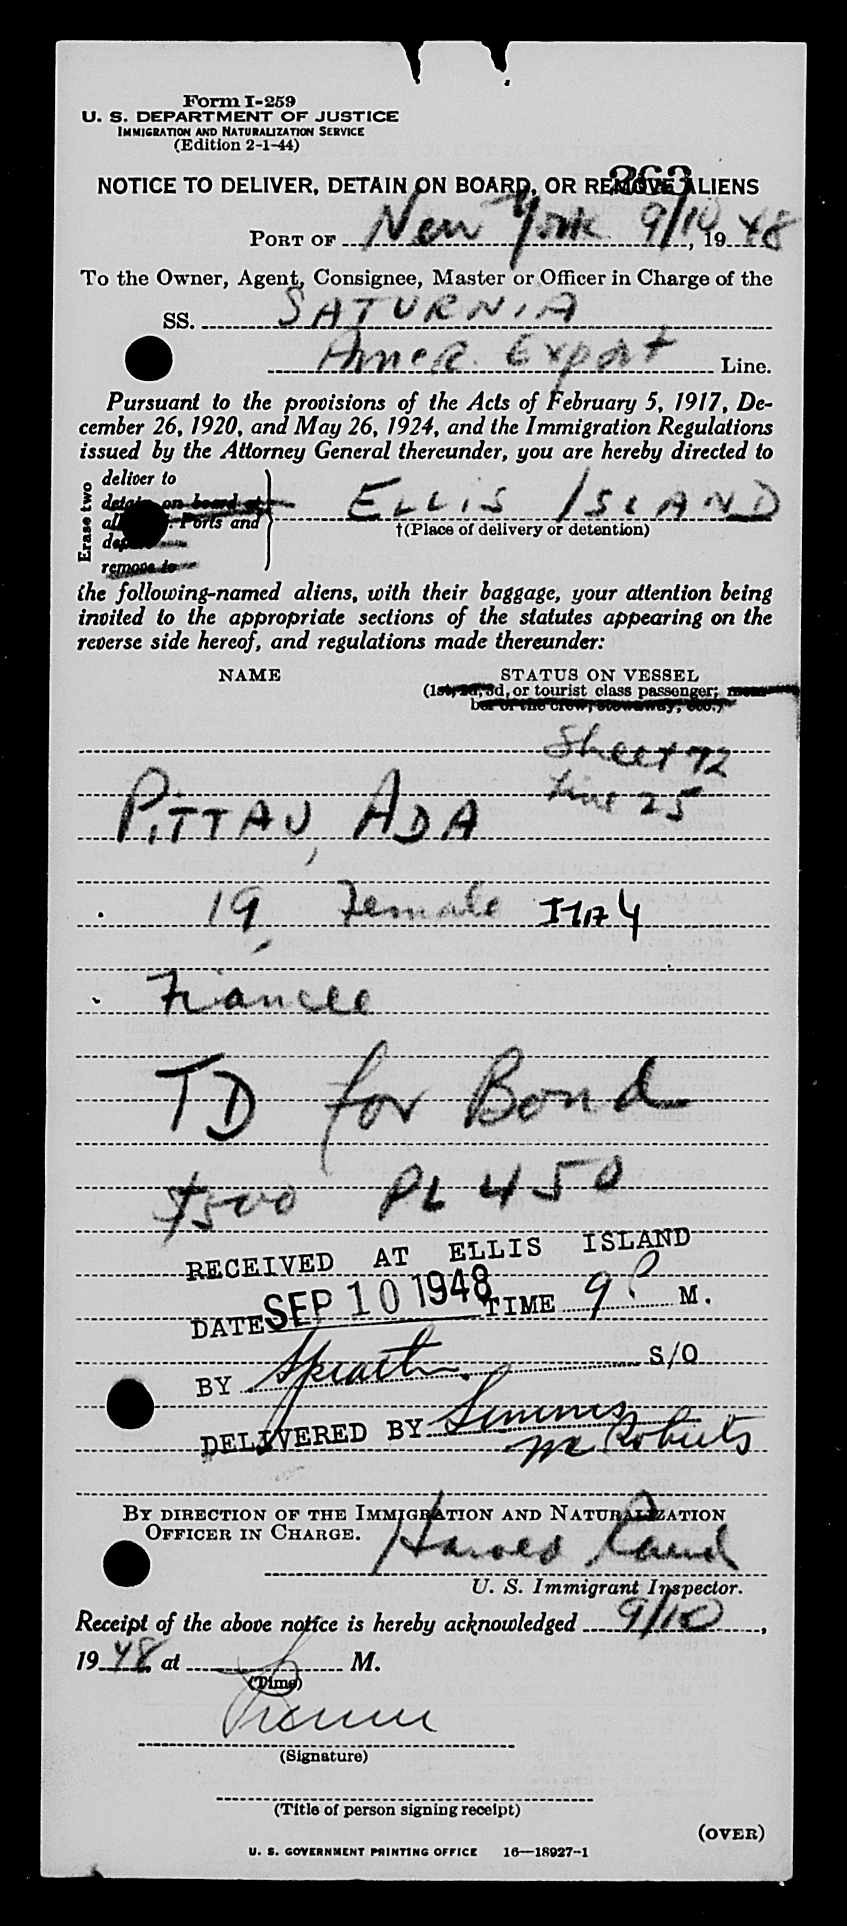 Form I-259
U. S. DEPARTMENT OF JUSTICE
IMMIGRATION AND NATURALIZATION SERVICE
(Edition 2-1-44)
263
NOTICE TO DELIVER, DETAIN ON BOARD, OR REMOVE ALIENS
PORT OF New York 9/10, 1948
To the Owner, Agent, Consignee, Master or Officer in Charge of the
SS. SATURNIA
Amer. Export Line.
Pursuant to the provisions of the Acts of February 5, 1917, De-
cember 26, 1920, and May 26, 1924, and the Immigration Regulations
issued by the Attorney General thereunder, you are hereby directed to
Erase two
deliver to
detain on board at
all Ports and
remove to
ELLIS ISLAND
†(Place of delivery or detention)
the following-named aliens, with their baggage, your attention being
invited to the appropriate sections of the statutes appearing on the
reverse side hereof, and regulations made thereunder:
NAME STATUS ON VESSEL
(1st, 2d, 3d, or tourist class passenger; mem-
ber of the crew, stowaway, etc.)
Sheet 72
Line 25
PITTAU, ADA
19, Female ITAY
Fiancee
TD for Bond
$500 PL 450
RECEIVED AT ELLIS ISLAND
DATE SEP 10 1948 TIME 9 P M.
BY S/O
DELIVERED BY Simms
McRoberts
BY DIRECTION OF THE IMMIGRATION AND NATURALIZATION
OFFICER IN CHARGE.
Harold
U. S. Immigrant Inspector.
Receipt of the above notice is hereby acknowledged 9/10,
1948, at M.
(Time)
(Signature)
(Title of person signing receipt)
(OVER)
U. S. GOVERNMENT PRINTING OFFICE 16—18927-1